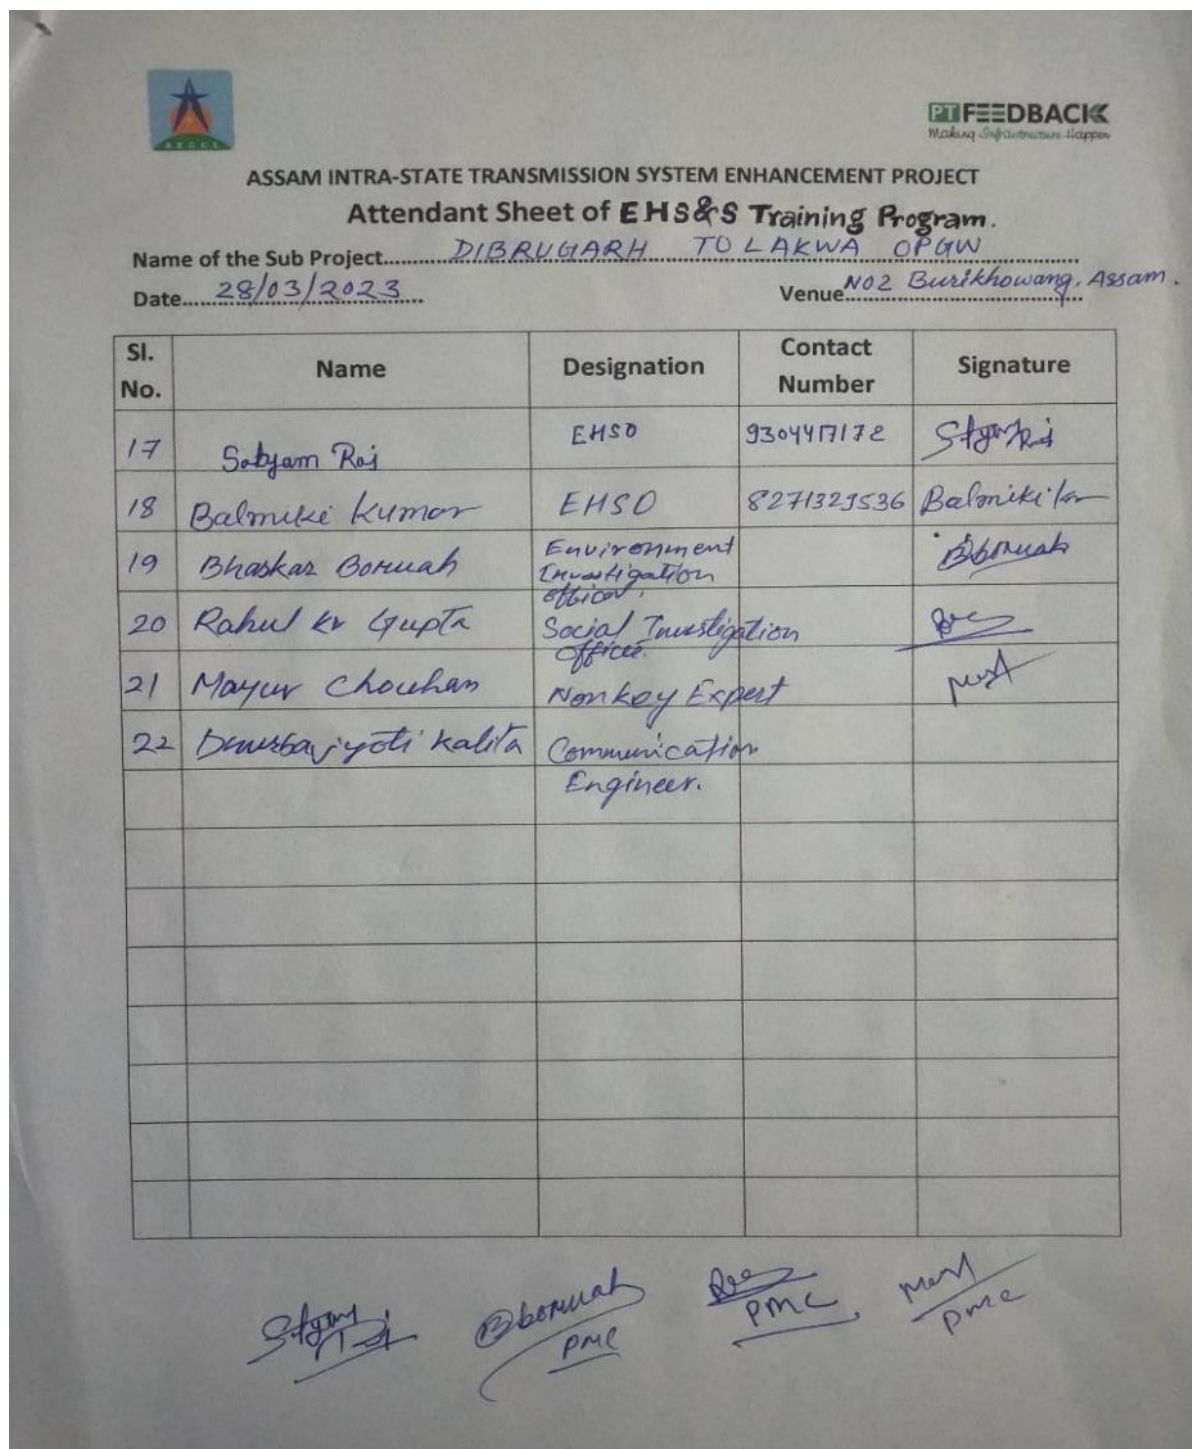 AEGCL
PT FEEDBACK
Making Infrastructure Happen
ASSAM INTRA-STATE TRANSMISSION SYSTEM ENHANCEMENT PROJECT
Attendant Sheet of EHS&S Training Program.
Name of the Sub Project..........DIBRUGARH TO LAKWA OPGW
Date.....28/03/2023 Venue NO2 Burikhowang, Assam.
Sl. No. Name Designation Contact Number Signature
17 Satyam Raj EHSO Satyam Raj
18 Balmiki Kumar EHSO 8271329536 Balmiki Kr
19 Bhaskar Boruah Environment Investigation officer. Bboruah
20 Rahul Kr Gupta Social Investigation Officer.
21 Mayur Chouhan Nonkey Expert
22 Dhrubajyoti Kalita Communication Engineer.
Satyam Raj Bboruah
PMC PMC PMC